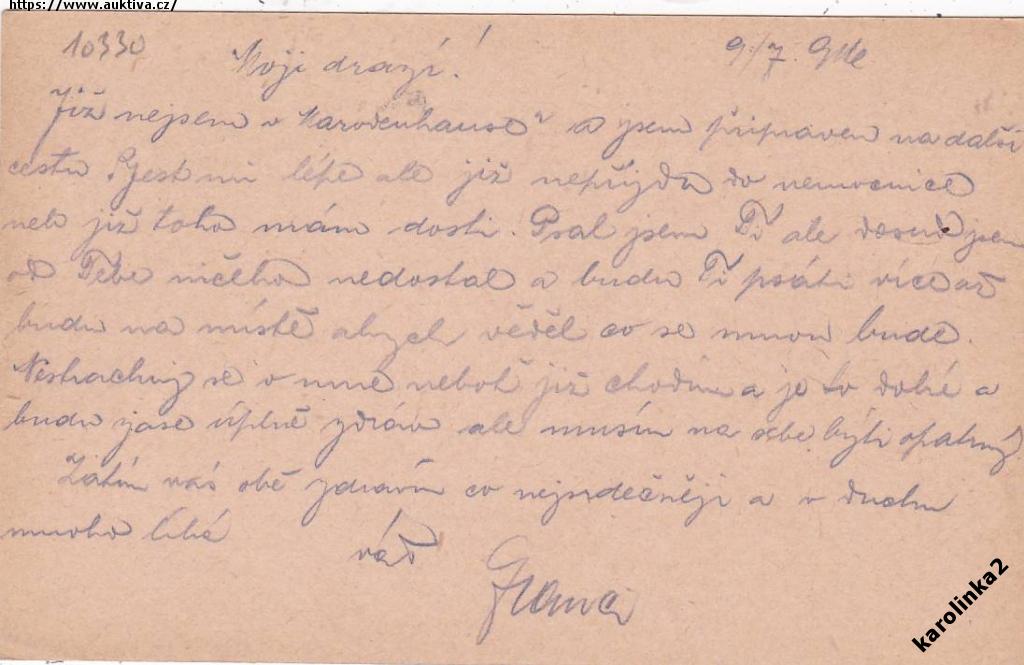 https://www.auktiva.cz/
10330
9/7. 916
Moji drazí!
Již nejsem v "Marodenhause" a jsem připraven na další
cestu. Jest mi lépe ale již nepřijdu do nemocnice
neb již toho mám dosti. Psal jsem Ti ale dosud jsem
od Tebe ničeho nedostal a budu Ti psáti více až
budu na místě abych věděl co se mnou bude.
se o mne neboť již chodím a je to dobré a
budu zase úplně zdráv ale musím na sebe býti opatrný
Zatím vás obě zdravím co nejsrdečněji a v duchu
mnoho líbá
váš
Franci
karolinka2